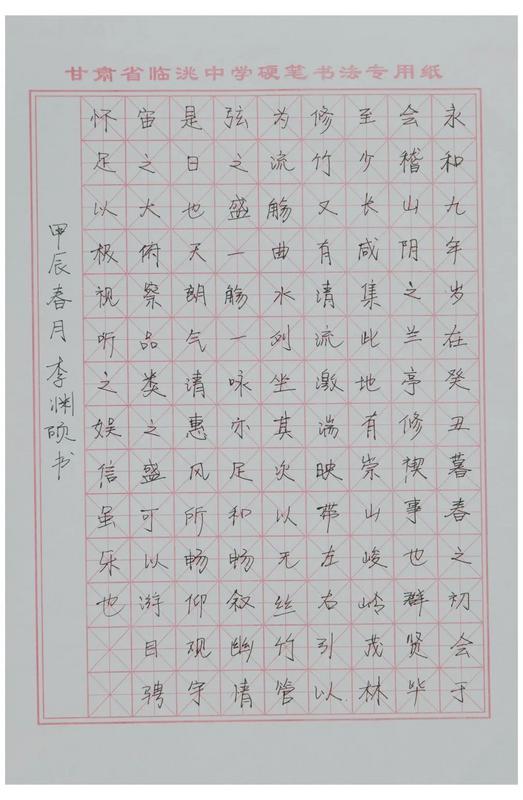 甘肃省临洮中学硬笔书法专用纸
永和九年岁在癸丑暮春之初会于
会稽山阴之兰亭修禊事也群贤毕
至少长咸集此地有崇山峻岭茂林
修竹又有清流激湍映带左右引以
为流觞曲水列坐其次以无丝竹管
弦之盛一觞一咏亦足和畅叙幽情
是日也天朗气清惠风所畅仰观宇
宙之大俯察品类之盛可以游目骋
怀足以极视听之娱信虽乐也
甲辰春月 李渊硕书